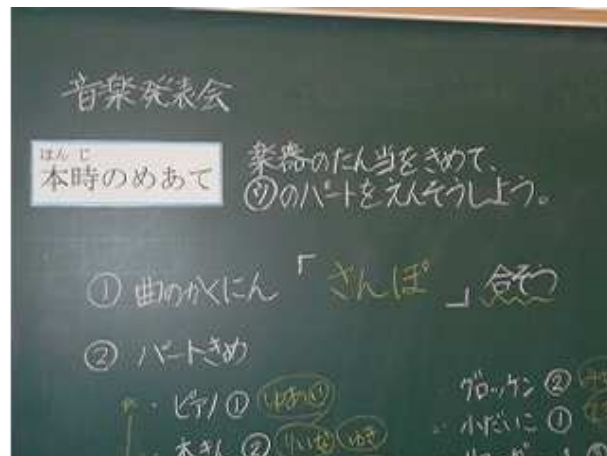 音楽発表会
ほんじ
本時のめあて
楽器のたん当をきめて、
㋷のパートをえんそうしよう。
① 曲のかくにん 「さんぽ」 合そう
② パートきめ
・ピアノ①
・木きん②
グロッケン②
・小だいこ①